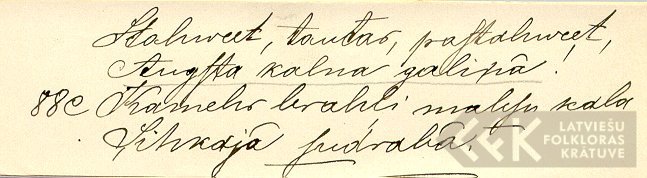 Stahweet, tautas, pastahweet,
Augsta kalna galinâ!
88c Kamehr brahli maksu kala
Sihkajâ sudrabâ.
LATVIEŠU
FOLKLORAS
KRĀTUVE